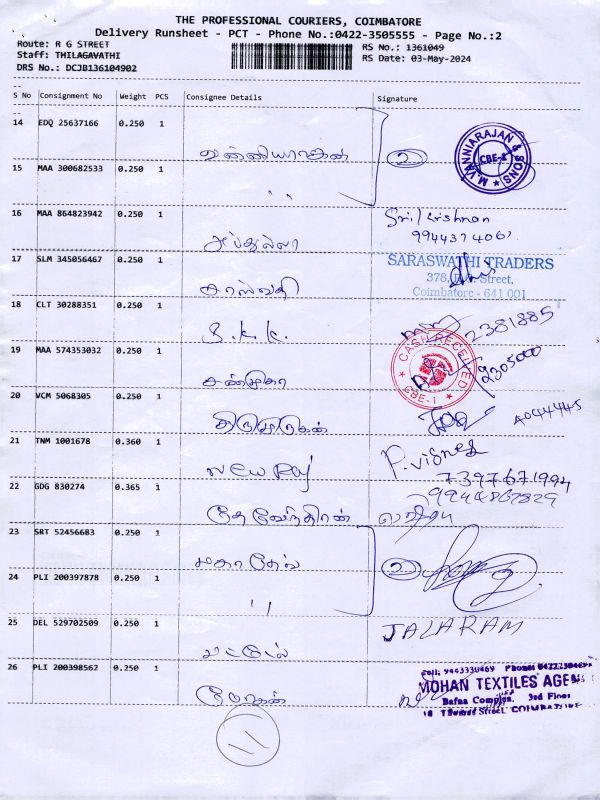 THE PROFESSIONAL COURIERS, COIMBATORE
Delivery Runsheet - PCT - Phone No.:0422-3505555 - Page No.:2
Route: R G STREET
RS No.: 1361049
Staff: THILAGAVATHI
RS Date: 03-May-2024
DRS No.: DCJB136104902
S No Consignment No Weight PCS Consignee Details Signature
14 EDQ 25637166 0.250 1
வன்னியராஜன் 2
M.VANNIARAJAN & SONS CBE-1
15 MAA 300682533 0.250 1
" "
16 MAA 864823942 0.250 1
அப்துல்லா
17 SLM 345056467 0.250 1
SARASWATHI TRADERS
378, Street,
Coimbatore - 641 001
சரஸ்வதி
18 CLT 30288351 0.250 1
S.K.K. 2381885
19 MAA 574353032 0.250 1
CASH RECEIVED CBE-1
சண்முகா
20 VCM 5068305 0.250 1
திருமுருகன் A044445
21 TNM 1001678 0.360 1
New Raj P. Vignes
7397671994
22 GDG 830274 0.365 1
9944867829
தேவேந்திரன்
23 SRT 52456683 0.250 1
மகாதேவ் 2
24 PLI 200397878 0.250 1
" "
25 DEL 529702509 0.250 1
JALARAM
பட்டேல்
26 PLI 200398562 0.250 1
Cell: 9443330469 Phone:
MOHAN TEXTILES AGEN
Bafna Complex, 3rd Floor
Thomas Street, COIMBATORE
மோகன்
11